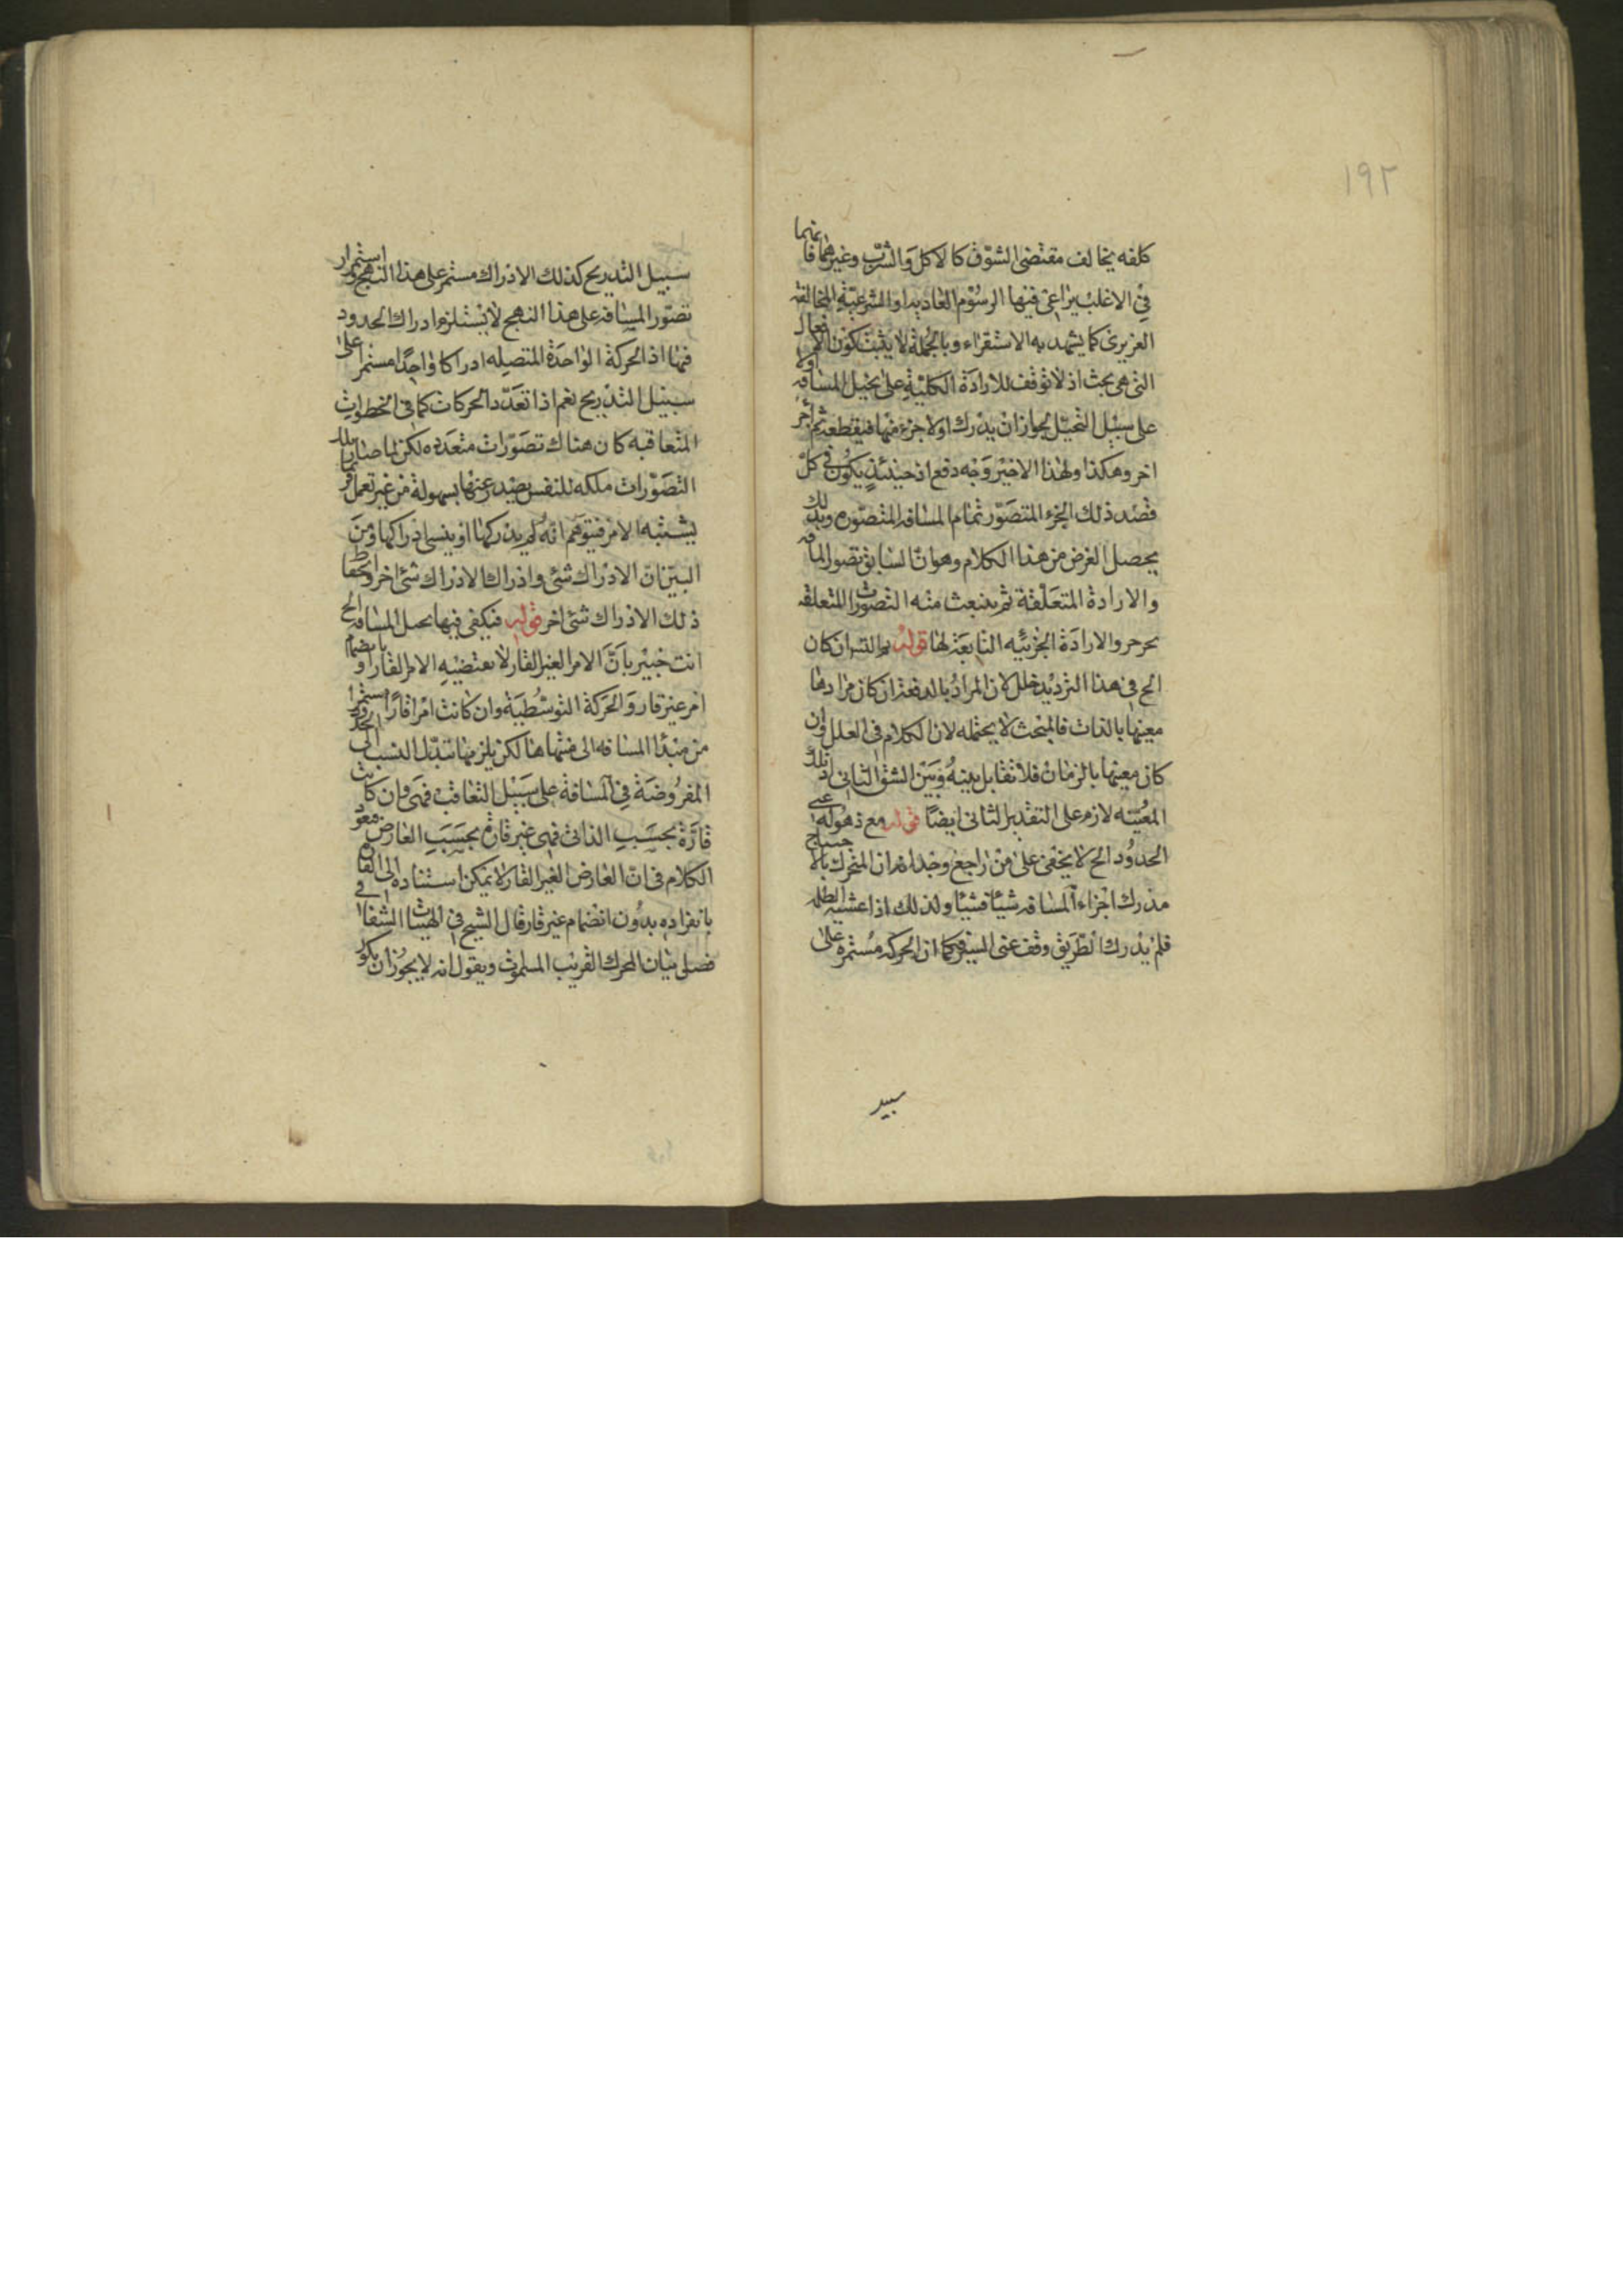 ١٩٢
كلفه يخالف مقتضى الشوق كالاكل والشرب وغيرهما فانهما
فى الاغلب يراعى فيها الرسوم العاديه او الشرعية المخالفة
الغريزى كما يشهد به الاستقراء وبالجملة لا يثبت كون الافعال
التى هى بحث اذ لا توقف للارادة الكلية على تخيل المسافه اولا
على سبيل التخيل لجواز ان يدرك اولا جزء منها فيقطعه ثم جزء
اخر وهكذا ولهذا الاخير وجه دفع اذ حينئذ يكون فى كل
قصد ذلك الجزء المتصور تمام المسافه المتصوره وبذلك
يحصل الغرض من هذا الكلام وهو ان السابق تصور المسافه
والارادة المتعلقة ثم ينبعث منه التصورات المتعلقه
والارادة الجزئيه التابعة لها قوله ان كان
الخ فى هذا الترديد خلل لان المراد بالدفعة ان كان مرادها
معيتها بالذات فالمبحث لا يحتمله لان الكلام فى العلل وان
كان معيتها بالزمان فلا تقابل بينه وبين الشق الثانى اذ تلك
المعيته لازم على التقدير الثانى ايضا قوله مع ذهوله عن
الحدود الخ لا يخفى على من راجع وجدانه ان المتحرك بالاحتياج
مدرك اجزاء المسافه شيئا فشيئا ولذلك اذا غشيه الظلمه
فلم يدرك الطريق وقف عن السير فكما ان الحركه مستمره على
سبيل
سبيل التدريج كذلك الادراك مستمر على هذا النهج واستمرار
تصور المسافه على هذا النهج لا يستلزم ادراك الحدود
فيها اذ الحركة الواحدة المتصله ادراكا واحدا مستمرا على
سبيل التدريج نعم اذا تعدد الحركات كما فى الخطوات
المتعاقبه كان هناك تصورات متعدده لكن لما صار تلك
التصورات ملكه للنفس يصدر عنها بسهولة من غير تعمل فربما
يشتبه الامر فيتوهم انه لم يدركها او ينسى ادراكها ومن
البين ان الادراك شئ وادراك الادراك شئ اخر وانحفاظ
ذلك الادراك شئ اخر قوله فيكفى فيها المسافه الخ
انت خبير بان الامر الغير القار لا يقتضيه الامر القار او بانضمام
امر غير قار والحركة التوسطية وان كانت امرا قارا مستمرا
من مبدأ المسافه الى منتهاها لكن يلزمها تبدل النسب الى الحدود
المفروضة فى المسافة على سبيل التعاقب فهى وان كانت
قارة بحسب الذات فهى غير قارة بحسب العارض فيعود
الكلام فى ان العارض الغير القار لا يمكن استناده الى القار
بانفراده بدون انضمام غير قار قال الشيخ فى الهيات الشفا فى
فصل بيان المحرك القريب ويقول انه لا يجوز ان يكون